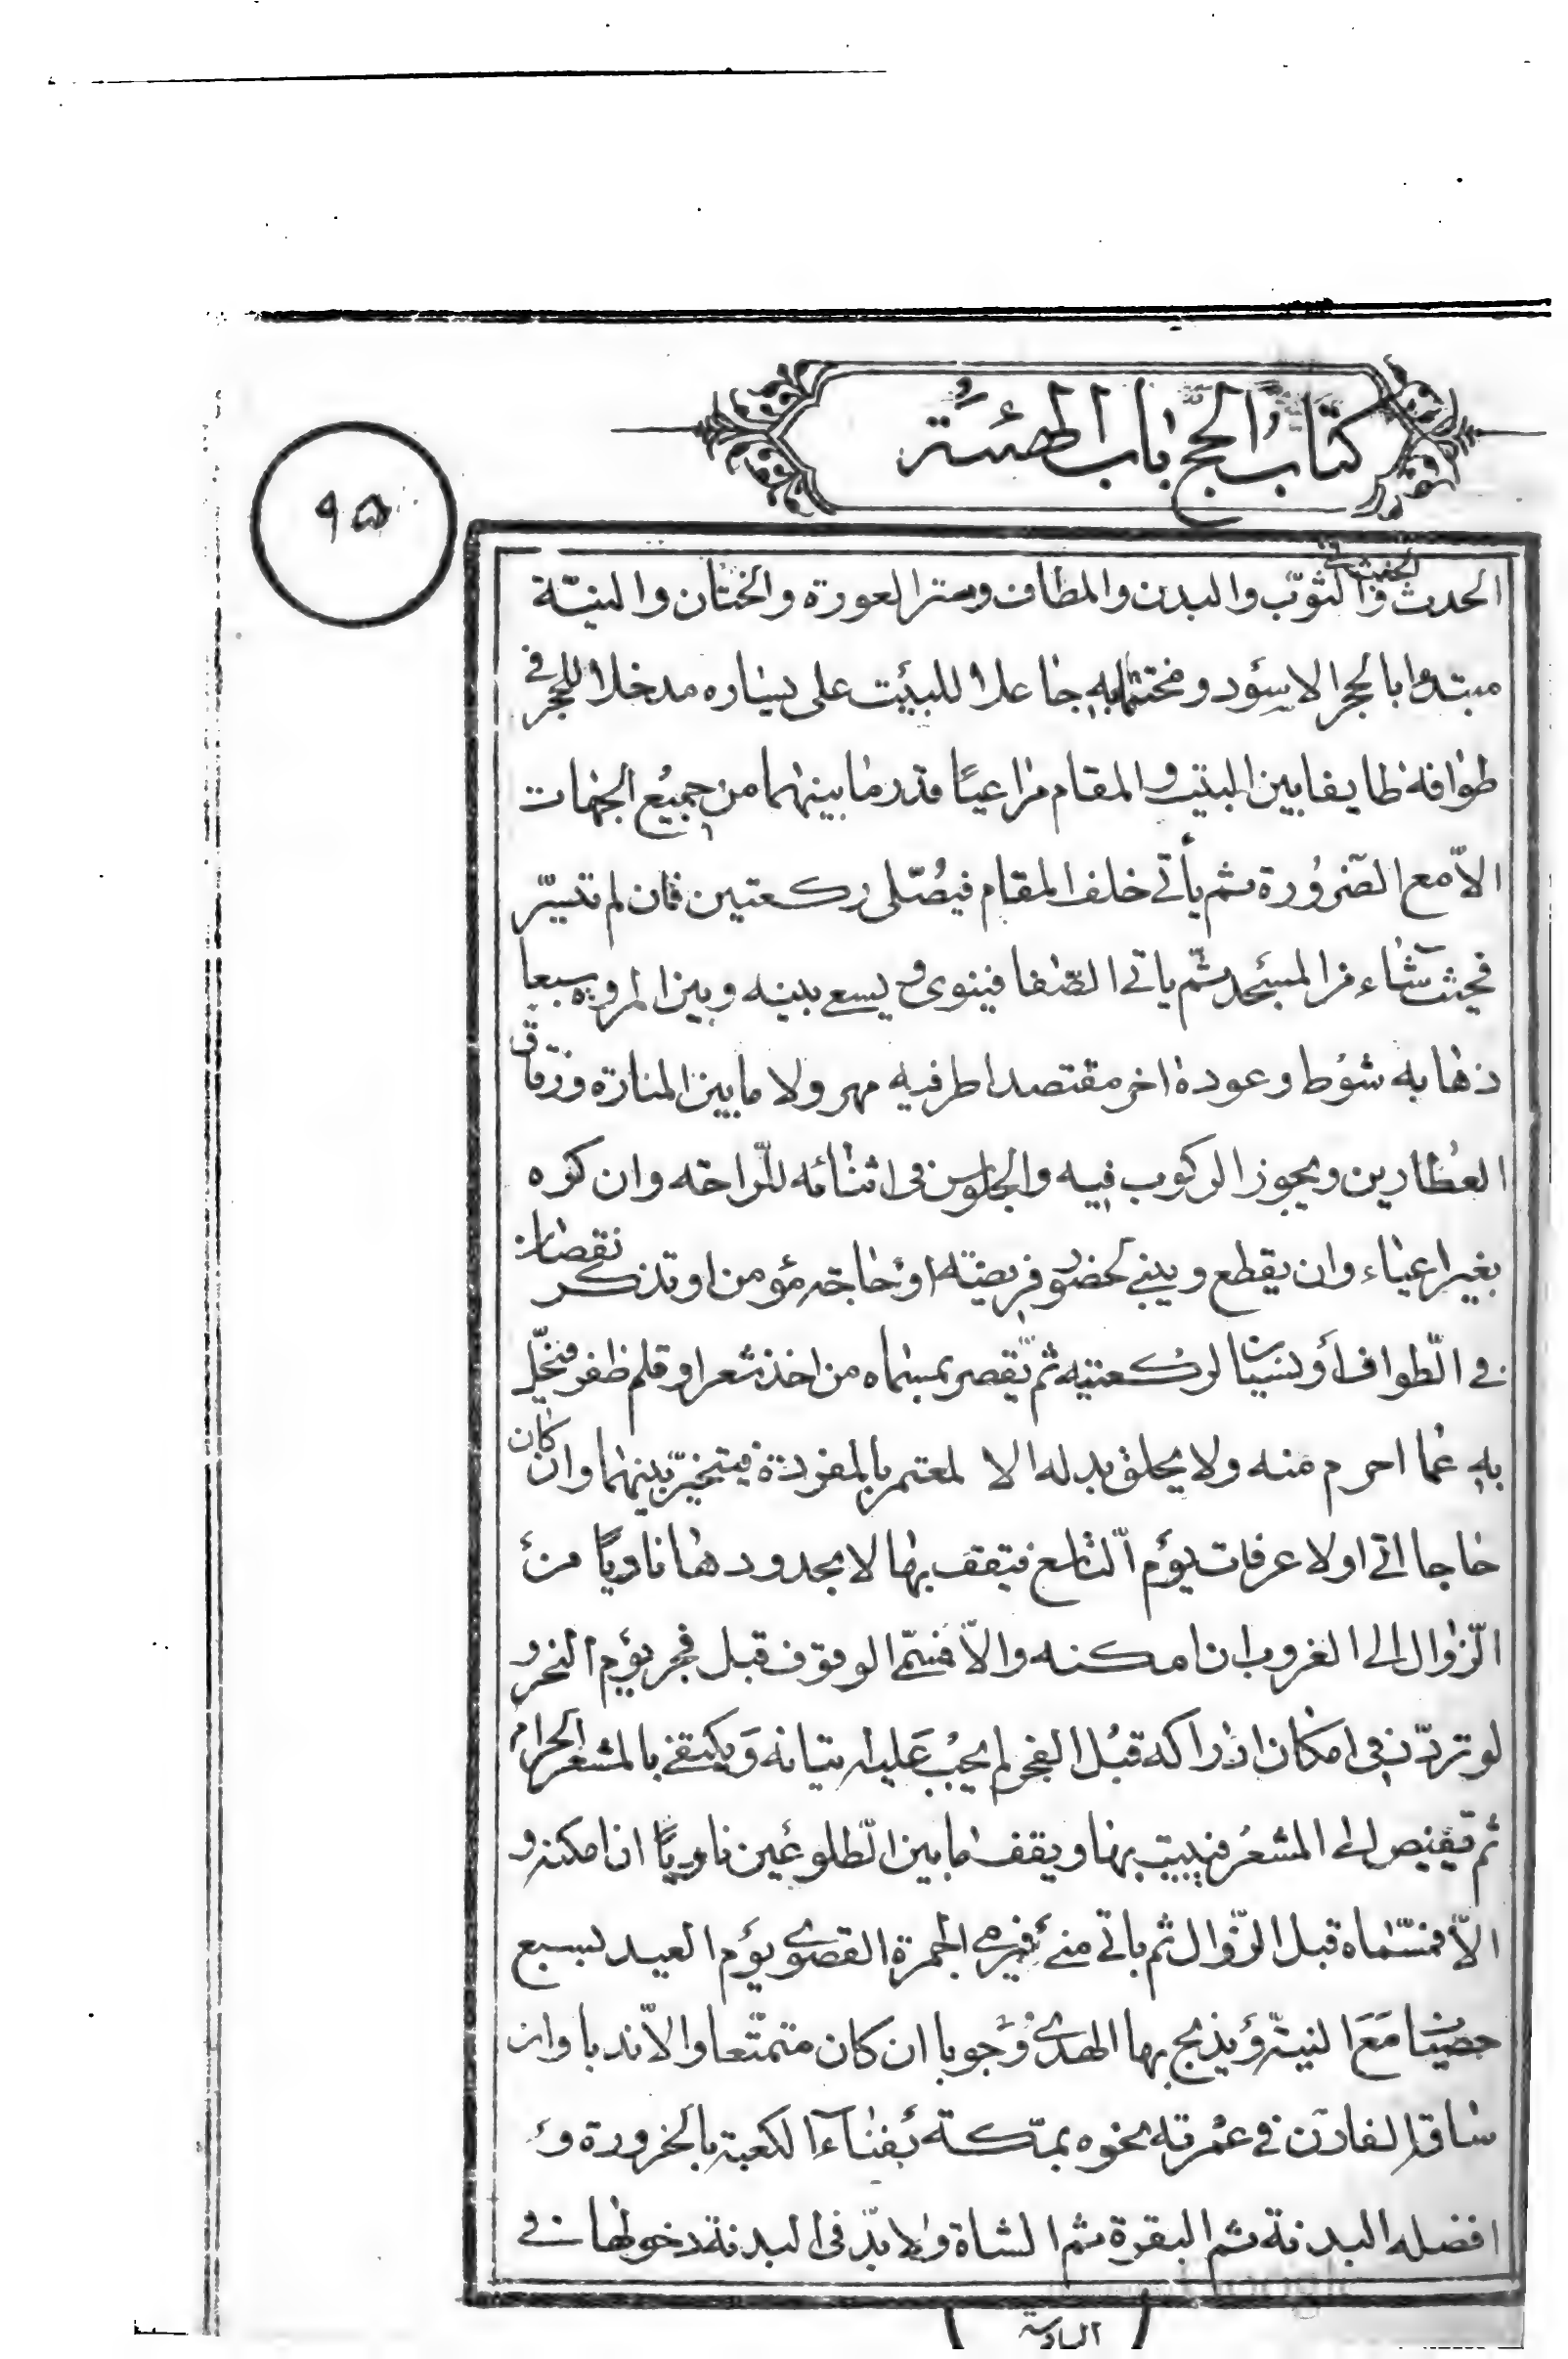 كتاب الحج باب الهيئة
٩٥
الخبث في
الحدث و الثوب والبدن والمطاف وستر العورة والختان والنية
مبتدءا بالحجر الاسود ومختتما به جاعلا للبيت على يساره مدخلا للحجر في
طوافه طايفا بين البيت والمقام مراعيا قدر ما بينهما من جميع الجهات
الا مع الضرورة ثم يأتي خلف المقام فيصلى ركعتين فان لم تتيسر
فحيث شاء من المسجد ثم ياتى الصفا فينوى و يسعى بينه وبين المروة سبعا
ذهابه شوط وعوده اخر مقتصدا طرفيه مهرولا ما بين المنارة وزقاق
العطارين ويجوز الركوب فيه والجلوس في اثنائه للراحة وان كره
بغير اعياء وان يقطع ويبنى لحضور فريضة او حاجة مؤمن او تذكر نقصان
في الطواف أو نسيان لركعتيه ثم يقصر بمسماه من اخذ شعر او قلم ظفر فيحل
به عما احرم منه ولا يحلق بدله الا لمعتمر بالمفردة فيتخير بينهما وان كان
حاجا اتى اولا عرفات يوم التاسع فيقف بها لا بحدودها ناويا من
الزوال الى الغروب ان امكنه والا فمسمى الوقوف قبل فجر يوم النحر و
لو تردد في امكان ادراكه قبل الفجر لم يجب عليه اتيانه ويكتفى بالمشعر الحرام
ثم يفيض الى المشعر فيبيت بها ويقف ما بين الطلوعين ناويا ان امكنه و
الا فمسماه قبل الزوال ثم ياتى منى فيرمى الجمرة القصوى يوم العيد بسبع
حصيات مع النية ويذبح بها الهدى وجوبا ان كان متمتعا والا ندبا وان
ساق القارن في عمرته نحره بمكة بفناء الكعبة بالخزورة و
افضله البدنة ثم البقرة ثم الشاة ولا بد في البدنة دخولها في
السادسة